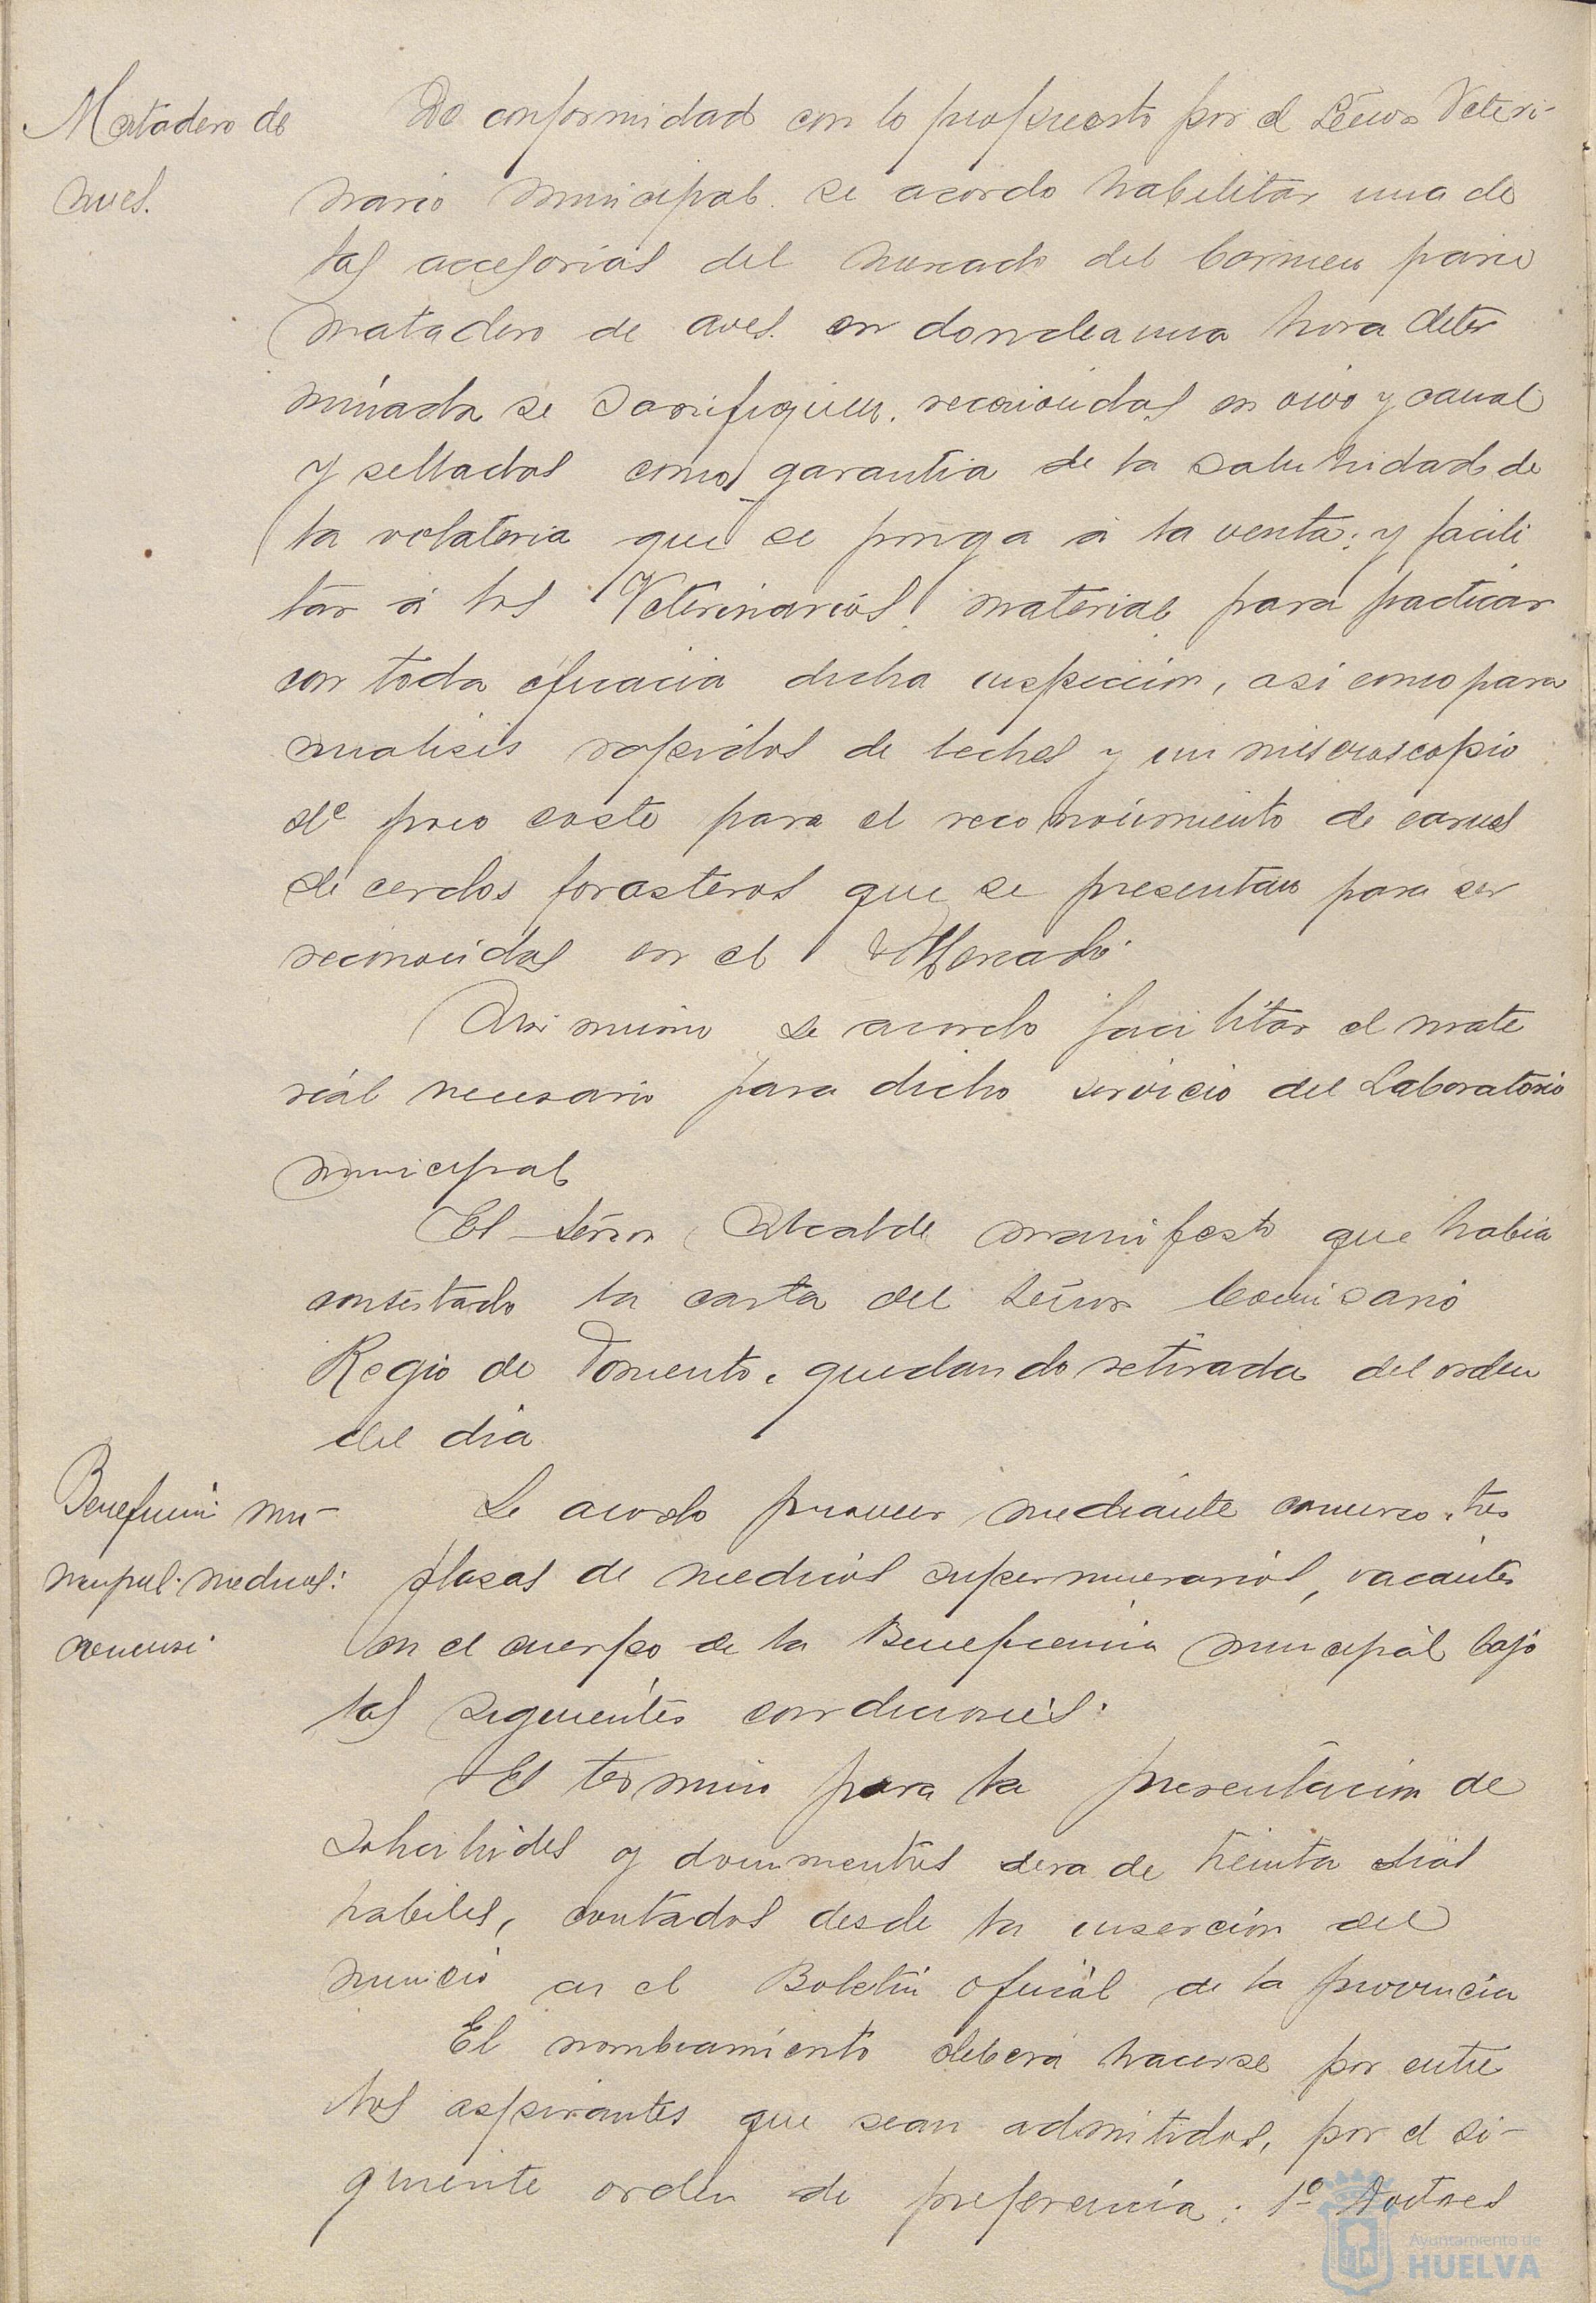 Matadero de
aves.
De conformidad con lo propuesto por el Señor Veteri-
nario municipal se acordo habilitar una de
las accesorias del mercado del Carmen para
matadero de aves. en donde a una hora deter
minada se sacrifiquen. reconocidas en vivo y canal
y selladas como garantia de la salubridad de
la volateria que se ponga á la venta; y facili
tar á los Veterinarios material para practicar
con toda eficacia dicha inspección, asi como para
analisis rapidos de leches y un miscroscopio
de poco coste para el reconocimiento de carnes
de cerdos forasteros que se presentan para ser
reconocidas en el Mercado.
Asi mismo se acordo facilitar el mate
rial necesario para dicho servicio del Laboratorio
municipal
El Señor Alcalde manifesto que habia
contestado la carta del Señor Comisario
Regio de Fomento. quedando retirada del orden
del dia
Beneficencia mu-
nicipal. medicos:
Se acordo proveer mediante concurso. tres
plazas de medicos supernumerarios, vacantes
en el cuerpo de la Beneficencia municipal bajo
las siguientes condiciones:
El termino para la presentacion de
solicitudes y documentos sera de treinta dias
habiles, contados desde la inserción del
anuncio en el Boletin oficial de la provincia
El nombramiento deberá hacerse por entre
los aspirantes que sean admitidos, por el si-
guiente orden de preferencia: 1º Doctores
Ayuntamiento de
HUELVA